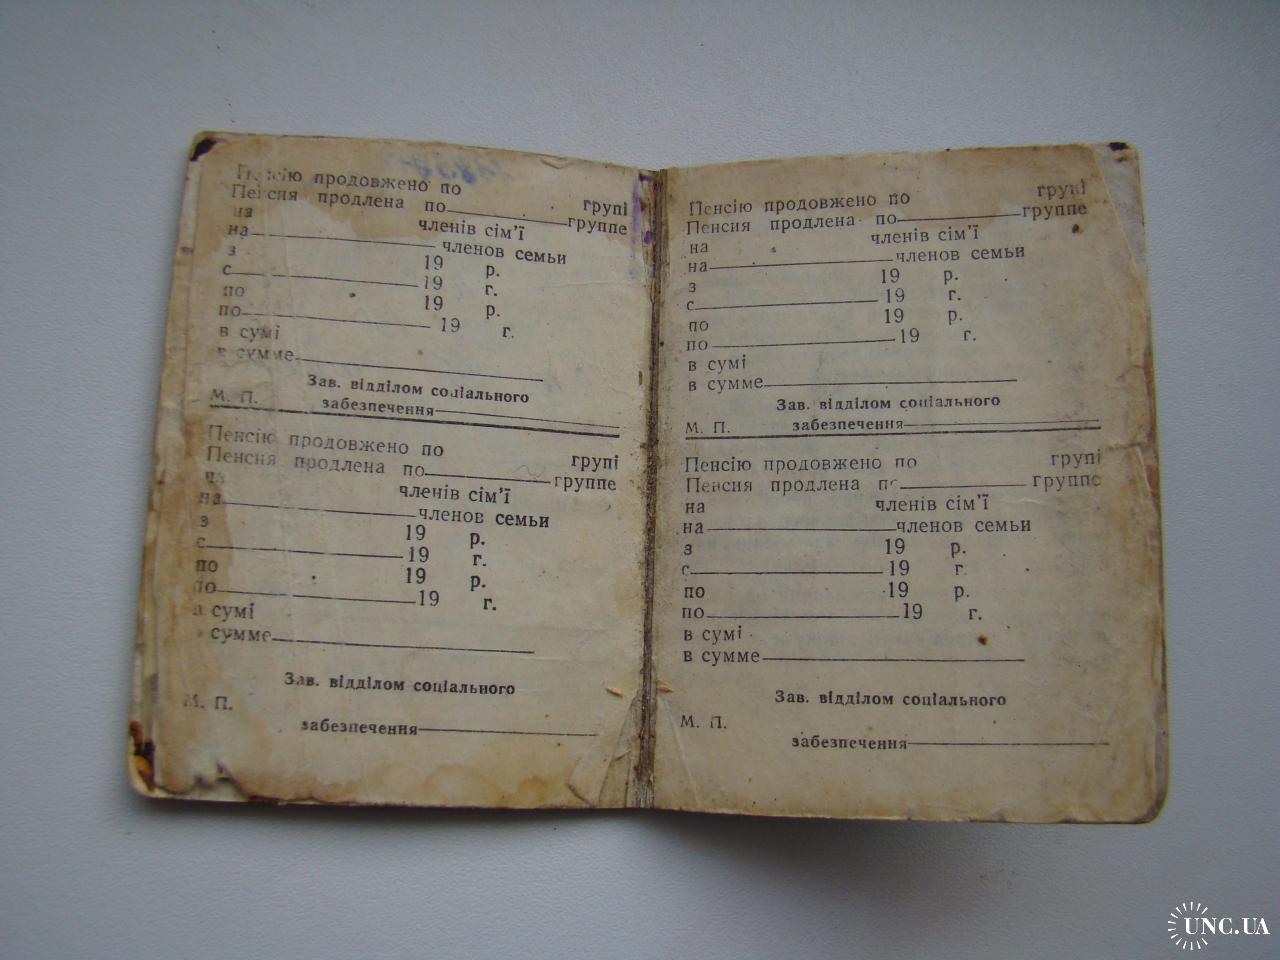 Пенсію продовжено по групі
Пенсия продлена по группе
на членів сім’ї
на членов семьи
з 19 р.
с 19 г.
по 19 р.
по 19 г.
в сумі
в сумме
Зав. відділом соціального
М. П. забезпечення
Пенсію продовжено по групі
Пенсия продлена по группе
на членів сім’ї
на членов семьи
з 19 р.
с 19 г.
по 19 р.
по 19 г.
в сумі
сумме
Зав. відділом соціального
М. П.
забезпечення
Пенсію продовжено по групі
Пенсия продлена по группе
на членів сім’ї
на членов семьи
з 19 р.
с 19 г.
по 19 р.
по 19 г.
в сумі
в сумме
Зав. відділом соціального
М. П. забезпечення
Пенсію продовжено по групі
Пенсия продлена по группе
на членів сім’ї
на членов семьи
з 19 р.
с 19 г
по 19 р.
по 19 г.
в сумі
в сумме
Зав. відділом соціального
М. П.
забезпечення
UNC.UA